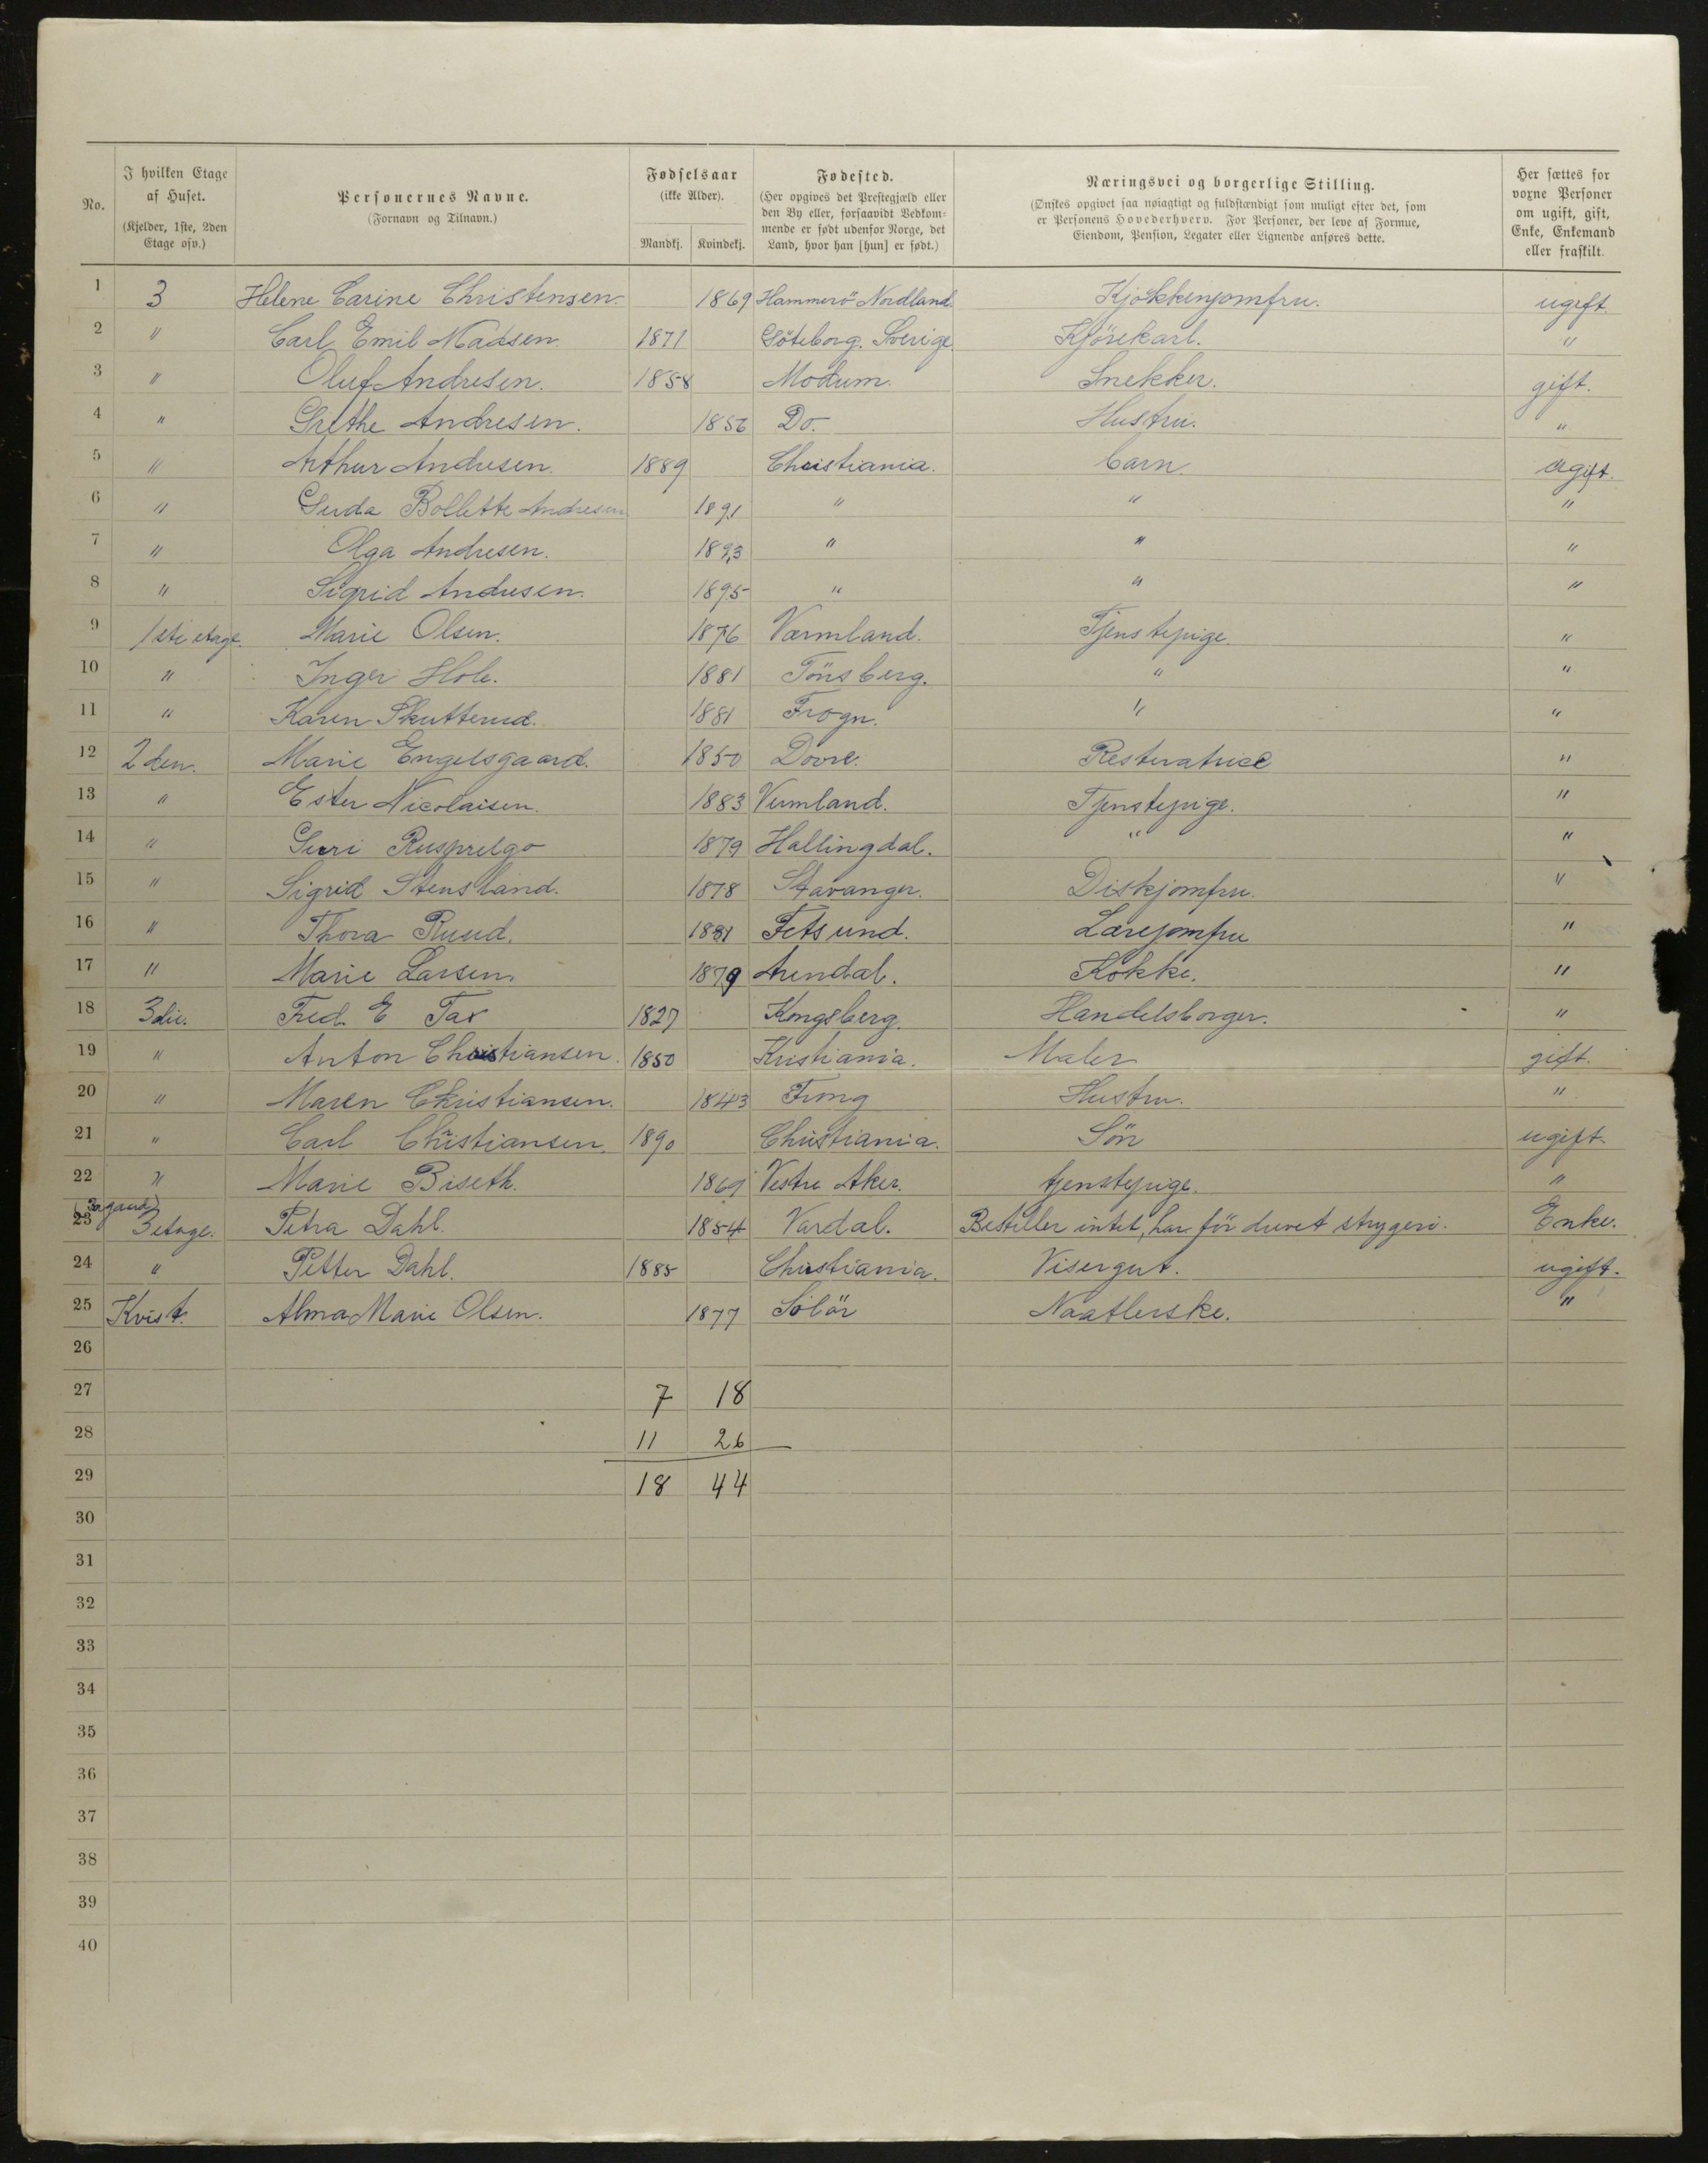 No.
I hvilken Etage af Huset. (Kjelder, 1ste, 2den Etage osv.)
Personernes Navne. (Fornavn og Tilnavn.)
Fødselsaar (ikke Alder). Mandkj. Kvindekj.
Fødested. (Her opgives det Prestegjæld eller den By eller, forsaavidt Vedkommende er født udenfor Norge, det Land, hvor han [hun] er født.)
Næringsvei og borgerlige Stilling. (Ønskes opgivet saa nøiagtigt og fuldstændigt som muligt efter det, som er Personens Hovederhverv. For Personer, der leve af Formue, Eiendom, Pension, Legater eller Lignende anføres dette.
Her sættes for voxne Personer om ugift, gift, Enke, Enkemand eller fraskilt.
1 3 Helene Carine Christensen. 1869 Hammerö Nordland. Kjökkenjomfru. ugift
2 " Carl Emil Madsen 1871 Göteborg. Sverige. Kjörekarl. "
3 " Oluf Andresen. 1858 Modum. Snekker. gift.
4 " Grethe Andresen. 1856 Do. Hustru. "
5 " Arthur Andresen. 1889 Christiania. barn. ugift.
6 " Gerda Bollette Andresen 1891 " " "
7 " Olga Andresen. 1893 " " "
8 " Sigrid Andresen. 1895 " " "
9 1ste etage. Marie Olsen. 1876 Varmland. Tjenstepige. "
10 " Inger Hole. 1881 Tönsberg. " "
11 " Karen Skutterud. 1881 Frogn. " "
12 2den. Marie Engelsgaard. 1850 Dovre. Restvatrice "
13 " Ester Nicolaisen. 1883 Vermland. Tjenstepige. "
14 " Guri 1879 Hallingdal. " "
15 " Sigrid Stensland. 1878 Stavanger. Diskjomfru. "
16 " Thora Ruud. 1881 Fetsund. Lærejomfru "
17 " Marie Larsen 1879 Arendal. Kokke. "
18 3die. Fred. E 1827 Kongsberg. Handelsborger. "
19 " Anton Christiansen. 1850 Kristiania. Maler gift.
20 " Maren Christiansen. 1843 Hustru. "
21 " Carl Christiansen. 1890 Christiania. Sön ugift.
22 " Marie Biseth. 1869 Vestre Aker. tjenstepige. "
23 (Bagaard) 3 etage. Petra Dahl. 1854 Vardal. Bestiller intet, har för drevet strygeri. Enke.
24 " Petter Dahl. 1885 Christiania. Visergut. ugift.
25 Kvist. Alma Marie Olsen. 1877 Solör Naatlerske. "
26
27 7 18
28 11 26
29 18 44
30
31
32
33
34
35
36
37
38
39
40